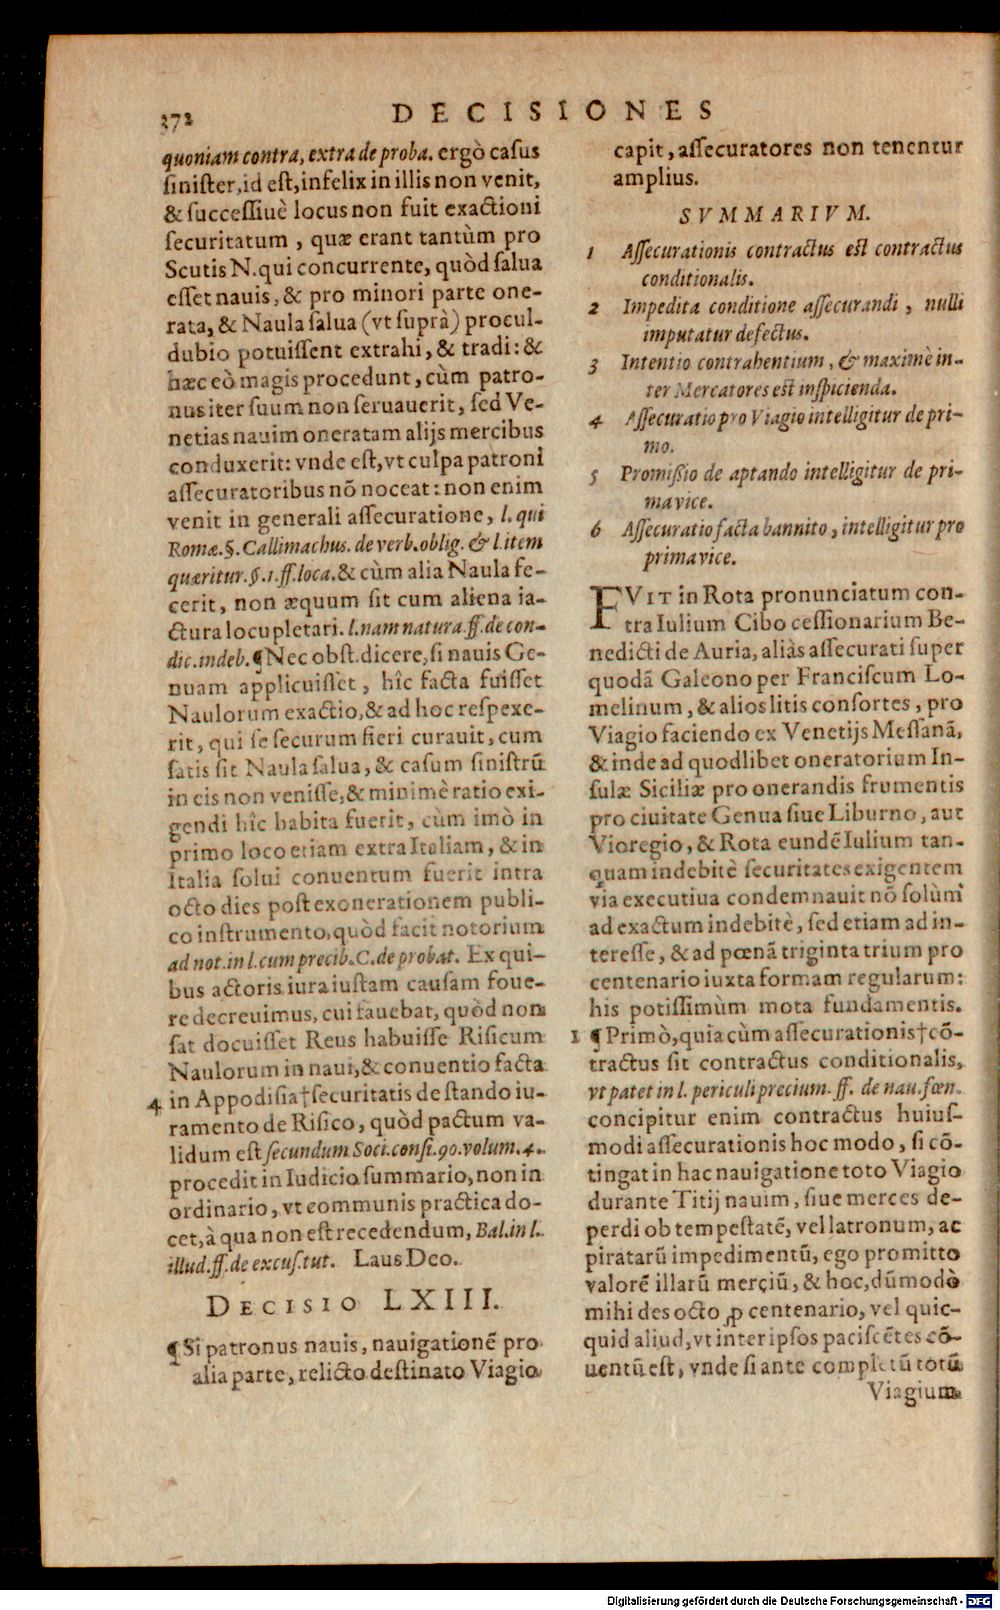 372
DECISIONES
quoniam contra, extra de proba. ergò casus
sinister, id est, infelix in illis non venit,
& successiuè locus non fuit exactioni
securitatum, quæ erant tantùm pro
Scutis N. qui concurrente, quòd salua
esset nauis, & pro minori parte one-
rata, & Naula salua (vt suprà) procul-
dubio potuissent extrahi, & tradi: &
hæc eò magis procedunt, cùm patro-
nus iter suum non seruauerit, sed Ve-
netias nauim oneratam alijs mercibus
conduxerit: vnde est, vt culpa patroni
assecuratoribus nõ noceat: non enim
venit in generali assecuratione, l. qui
Romæ. §. Callimachus. de verb. oblig. & l. item
quæritur. §. 1. ff. loca. & cùm alia Naula fe-
cerit, non æquum sit cum aliena ia-
ctura locupletari. l. nam natura. ff. de con-
dic. indeb. ¶ Nec obst. dicere, si nauis Ge-
nuam applicuisset, hîc facta fuisset
Naulorum exactio, & ad hoc respexe-
rit, qui se securum fieri curauit, cum
satis sit Naula salua, & casum sinistrũ
in eis non venisse, & minimè ratio exi-
gendi hîc habita fuerit, cùm imò in
primo loco etiam extra Italiam, & in
Italia solui conuentum fuerit intra
octo dies post exonerationem publi-
co instrumento, quòd facit notorium
ad not. in l. cum precib. C. de probat. Ex qui-
bus actoris iura iustam causam foue-
re decreuimus, cui fauebat, quòd non
sat docuisset Reus habuisse Risicum
Naulorum in naui, & conuentio facta
4 in Appodisia † securitatis de stando iu-
ramento de Risico, quòd pactum va-
lidum est secundum Soci. consi. 90. volum. 4.
procedit in Iudicio summario, non in
ordinario, vt communis practica do-
cet, à qua non est recedendum, Bal. in l.
illud. ff. de excus. tut. Laus Deo.
DECISIO LXIII.
¶ Si patronus nauis, nauigationẽ pro
alia parte, relicto destinato Viagio
capit, assecuratores non tenentur
amplius.
SVMMARIVM.
1 Assecurationis contractus est contractus
conditionalis.
2 Impedita conditione assecurandi, nulli
imputatur defectus.
3 Intentio contrahentium, & maximè in-
ter Mercatores est inspicienda.
4 Assecuratio pro Viagio intelligitur de pri-
mo.
5 Promissio de aptando intelligitur de pri-
ma vice.
6 Assecuratio facta bannito, intelligitur pro
prima vice.
FVIT in Rota pronunciatum con-
tra Iulium Cibo cessionarium Be-
nedicti de Auria, aliàs assecurati super
quodã Galeono per Franciscum Lo-
melinum, & alios litis consortes, pro
Viagio faciendo ex Venetijs Messanã,
& inde ad quodlibet oneratorium In-
sulæ Siciliæ pro onerandis frumentis
pro ciuitate Genua siue Liburno, aut
Vioregio, & Rota eundẽ Iulium tan-
quam indebitè securitates exigentem
via executiua condemnauit nõ solùm
ad exactum indebitè, sed etiam ad in-
teresse, & ad pœnã triginta trium pro
centenario iuxta formam regularum:
his potissimùm mota fundamentis.
1 ¶ Primò, quia cùm assecurationis † cõ-
tractus sit contractus conditionalis,
vt patet in l. periculi precium. ff. de nau. fœn.
concipitur enim contractus huius-
modi assecurationis hoc modo, si cõ-
tingat in hac nauigatione toto Viagio
durante Titij nauim, siue merces de-
perdi ob tempestatẽ, vel latronum, ac
piratarũ impedimentũ, ego promitto
valorẽ illarũ merciũ, & hoc, dũmodò
mihi des octo ꝓ centenario, vel quic-
quid aliud, vt inter ipsos paciscẽtes cõ-
uentũ est, vnde si ante completũ totũ
Viagium
Digitalisierung gefördert durch die Deutsche Forschungsgemeinschaft - DFG